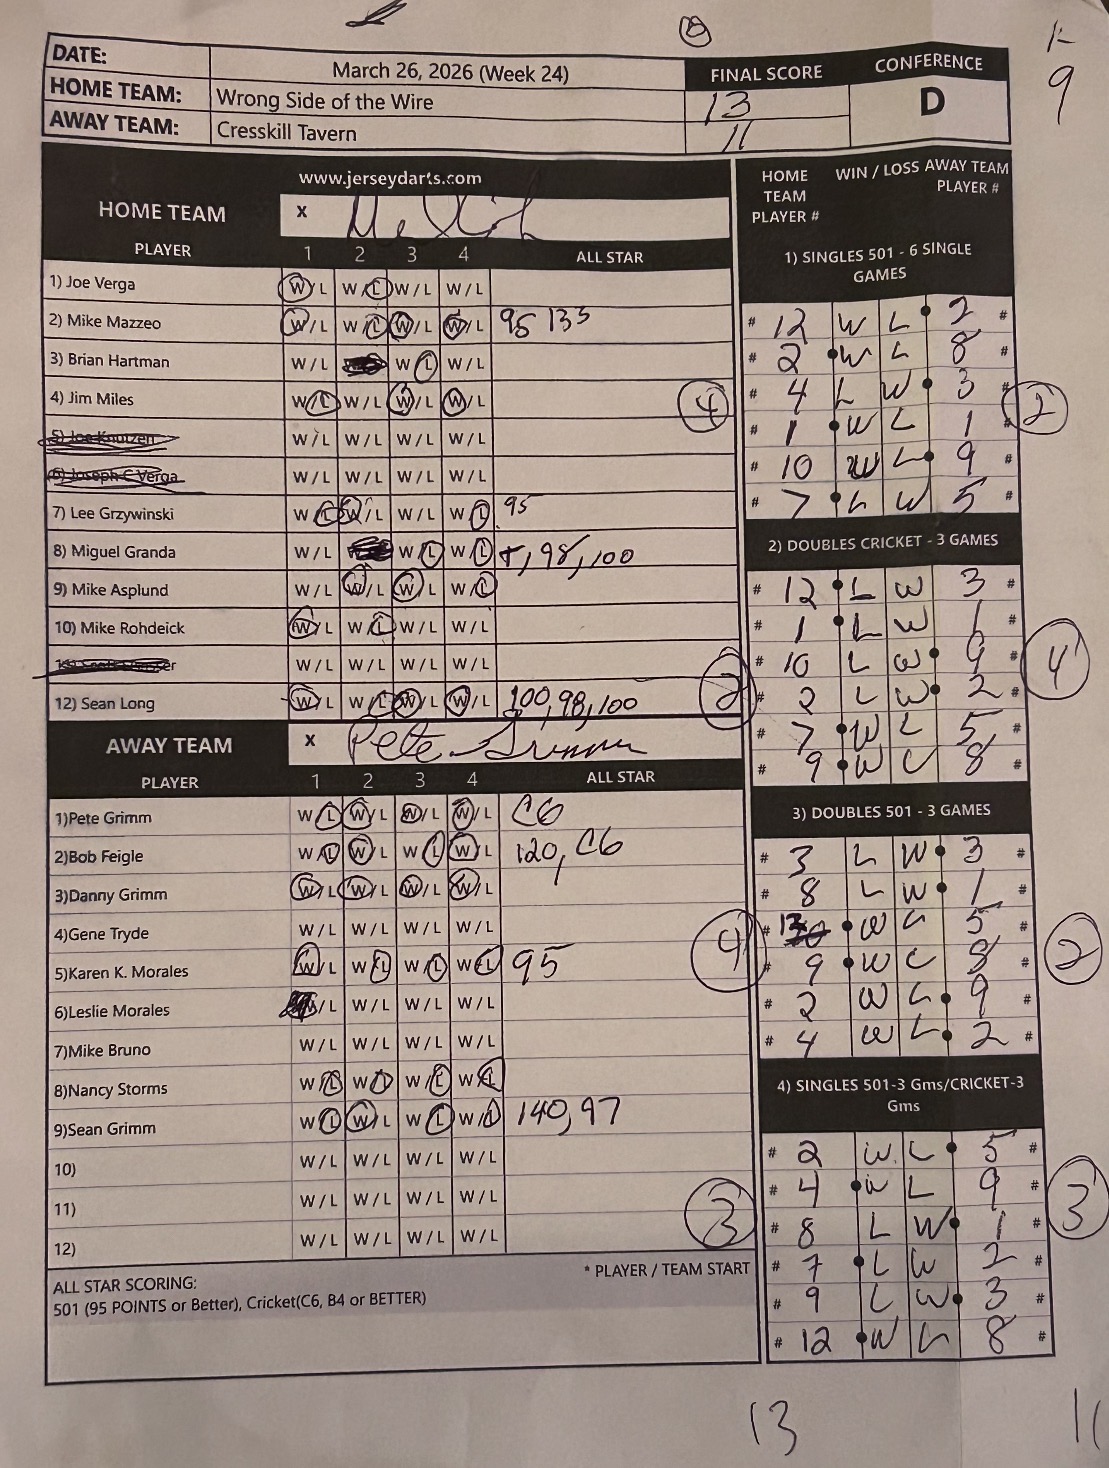 DATE: March 26, 2026 (Week 24) FINAL SCORE CONFERENCE
HOME TEAM: Wrong Side of the Wire 13 D
AWAY TEAM: Cresskill Tavern 11
9
www.jerseydarts.com
HOME TEAM X
PLAYER 1 2 3 4 ALL STAR
1) Joe Verga W/L W/L W/L W/L
2) Mike Mazzeo W/L W/L W/L W/L 95 133
3) Brian Hartman W/L W/L W/L
4) Jim Miles W/L W/L W/L W/L 4
5) Joe Knutzen W/L W/L W/L W/L
6) Joseph C Verga W/L W/L W/L W/L
7) Lee Grzywinski W/L W/L W/L W/L 95
8) Miguel Granda W/L W/L W/L 98, 100
9) Mike Asplund W/L W/L W/L W/L
10) Mike Rohdeick W/L W/L W/L W/L
W/L W/L W/L W/L
12) Sean Long W/L W/L W/L W/L 100, 98, 100 2
AWAY TEAM X Pete Grimm
PLAYER 1 2 3 4 ALL STAR
1)Pete Grimm W/L W/L W/L W/L C6
2)Bob Feigle W/L W/L W/L W/L 120, C6
3)Danny Grimm W/L W/L W/L W/L
4)Gene Tryde W/L W/L W/L W/L
5)Karen K. Morales W/L W/L W/L W/L 95 4
6)Leslie Morales W/L W/L W/L W/L
7)Mike Bruno W/L W/L W/L W/L
8)Nancy Storms W/L W/L W/L W/L
9)Sean Grimm W/L W/L W/L W/L 140, 97
10) W/L W/L W/L W/L
11) W/L W/L W/L W/L 3
12) W/L W/L W/L W/L
ALL STAR SCORING: * PLAYER / TEAM START
501 (95 POINTS or Better), Cricket(C6, B4 or BETTER)
HOME TEAM PLAYER # WIN / LOSS AWAY TEAM PLAYER #
1) SINGLES 501 - 6 SINGLE
GAMES
# 12 W L 2 #
# 2 W L 8 #
# 4 L W 3 # 2
# 1 W L 1 #
# 10 W L 9 #
# 7 L W 5 #
2) DOUBLES CRICKET - 3 GAMES
# 12 L W 3 #
# 1 L W 1 #
# 10 L W 9 # 4
# 2 L W 2 #
# 7 W L 5 #
# 9 W L 8 #
3) DOUBLES 501 - 3 GAMES
# 3 L W 3 #
# 8 L W 1 #
# 12 W L 5 #
# 9 W L 8 # 2
# 2 W L 9 #
# 4 W L 2 #
4) SINGLES 501-3 Gms/CRICKET-3
Gms
# 2 W L 5 #
# 4 W L 9 # 3
# 8 L W 1 #
# 7 L W 2 #
# 9 L W 3 #
# 12 W L 8 #
13 11